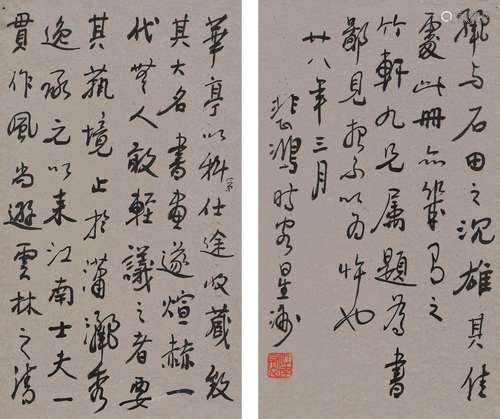 華亭以科第仕途收藏致
其大名書畫遂煊赫一
代無人敢輕議之者要
其藝境止於瀟灑秀
逸承元以來江南士夫一
貫作風尚遜雲林之清
與石田之沉雄其佳
處此冊亦幾有之
竹軒九兄属題為書
鄙見想不以為忤也
廿八年三月
悲鴻時客星洲